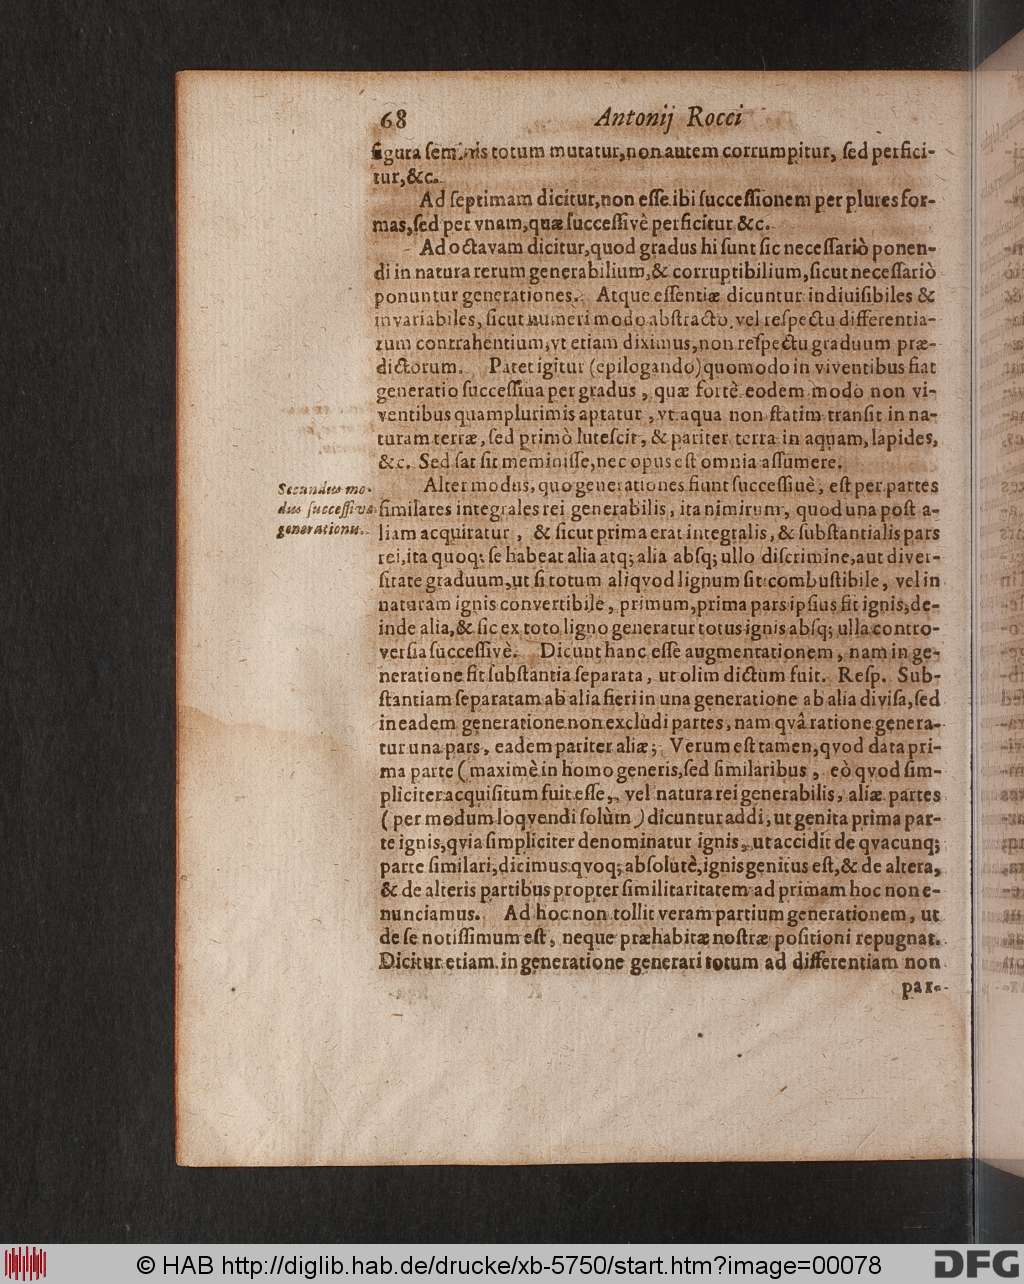 68 Antonij Rocci
figura seminis totum mutatur, non autem corrumpitur, sed perfici-
tur, &c.
Ad septimam dicitur, non esse ibi successionem per plures for-
mas, sed per vnam, quæ successivè perficitur &c.
Ad octavam dicitur, quod gradus hi sunt sic necessariò ponen-
di in natura rerum generabilium, & corruptibilium, sicut necessariò
ponuntur generationes. Atque essentiæ dicuntur indiuisibiles &
invariabiles, sicut numeri modo abstracto, vel respectu differentia-
rum contrahentium, vt etiam diximus, non respectu graduum præ-
dictorum. Patet igitur (epilogando) quomodo in viventibus fiat
generatio successiua per gradus, quæ fortè eodem modo non vi-
ventibus quamplurimis aptatur, vt aqua non statim transit in na-
turam terræ, sed primò lutescit, & pariter terra in aquam, lapides,
&c. Sed sat sit meminisse, nec opus est omnia assumere.
Secundus mo-
dus successivæ
generationis.
Alter modus, quo generationes fiunt successiuè, est per partes
similares integrales rei generabilis, ita nimirum, quod una post a-
liam acquiratur, & sicut prima erat integralis, & substantialis pars
rei, ita quoq; se habeat alia atq; alia absq; ullo discrimine, aut diver-
sitate graduum, ut si totum aliqvod lignum sit combustibile, vel in
naturam ignis convertibile, primum, prima pars ipsius fit ignis, de-
inde alia, & sic ex toto ligno generatur totus ignis absq; ulla contro-
versia successivè. Dicunt hanc esse augmentationem, nam in ge-
neratione fit substantia separata, ut olim dictum fuit. Resp. Sub-
stantiam separatam ab alia fieri in una generatione ab alia divisa, sed
in eadem generatione non excludi partes, nam qvâ ratione genera-
tur una pars, eadem pariter aliæ; Verum est tamen, qvod data pri-
ma parte (maximè in homogeneris, sed similaribus, eò qvod sim-
pliciter acquisitum fuit esse, vel natura rei generabilis, aliæ partes
(per modum loqvendi solùm) dicuntur addi, ut genita prima par-
te ignis, qvia simpliciter denominatur ignis, ut accidit de qvacunq;
parte similari, dicimus qvoq; absolutè, ignis genitus est, & de altera,
& de alteris partibus propter similitaritatem ad primam hoc non e-
nunciamus. Ad hoc non tollit veram partium generationem, ut
de se notissimum est, neque præhabitæ nostræ positioni repugnat.
Dicitur etiam in generatione generari totum ad differentiam non
par-
© HAB http://diglib.hab.de/drucke/xb-5750/start.htm?image=00078
DFG